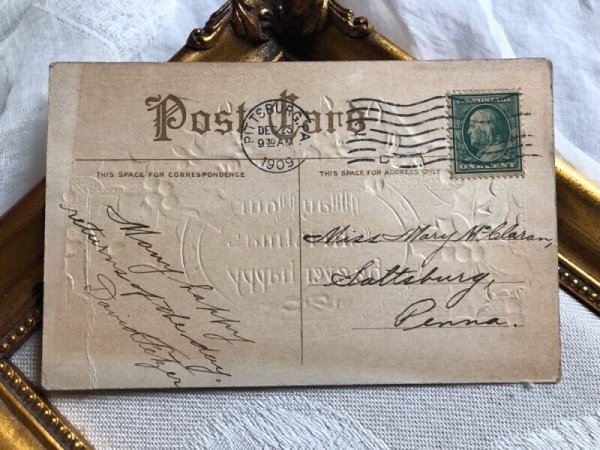 Post Card
PITTSBURG, PA
DEC 23
9 30 AM
1909
U.S. POSTAGE
ONE CENT
THIS SPACE FOR CORRESPONDENCE
THIS SPACE FOR ADDRESS ONLY
Many happy
returns of the day.
David
Miss Mary McClaran,
Saltsburg,
Penna.
May Your
Christmas
be ever happy